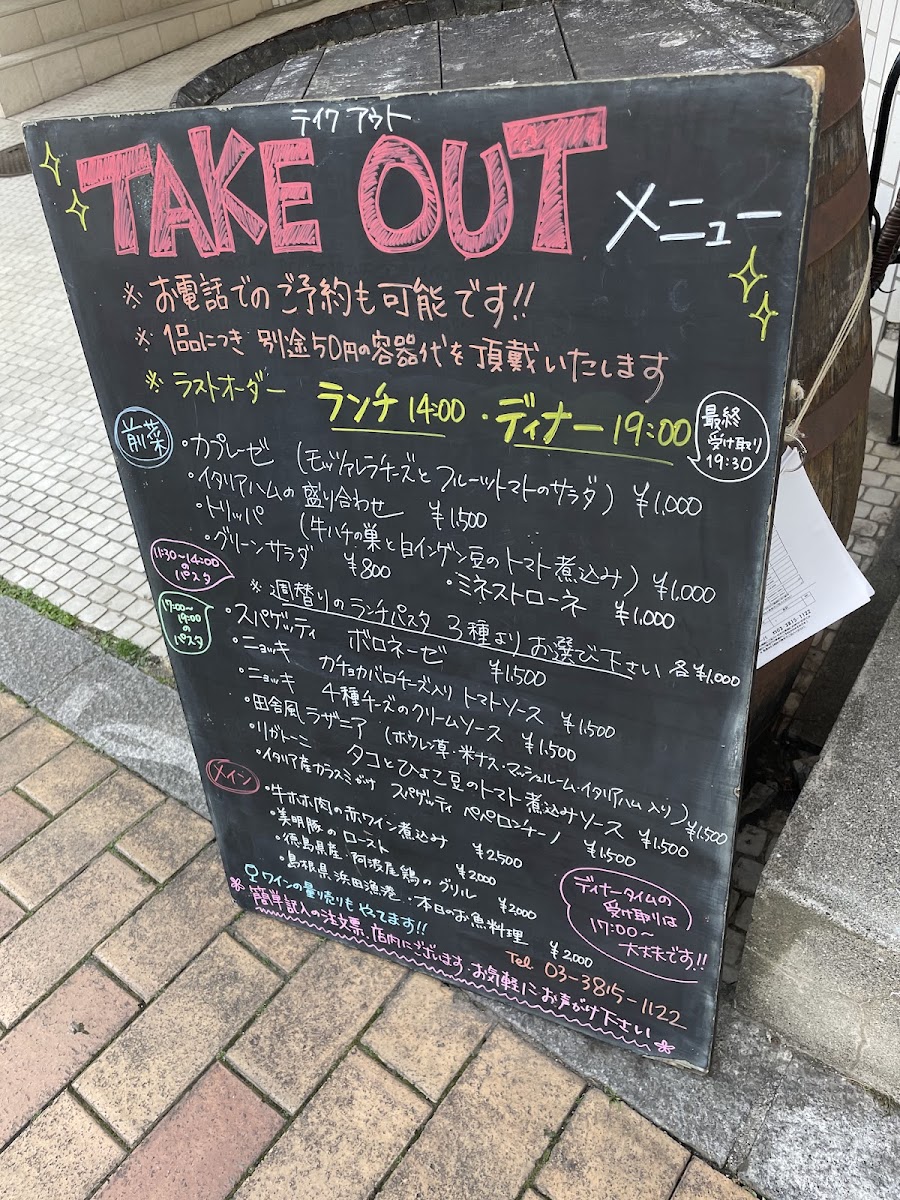 テイクアウト
TAKE OUT メニュー
※ お電話でのご予約も可能です!!
※ 1品につき 別途50円の容器代を頂戴いたします
※ ラストオーダー ランチ 14:00 ・ディナー 19:00
最終
受け取り
19:30
前菜
・カプレーゼ (モッツァレラチーズとフルーツトマトのサラダ) ¥1,000
・イタリアハムの盛り合わせ ¥1,500
・トリッパ (牛ハチの巣と白インゲン豆のトマト煮込み) ¥1,000
・グリーンサラダ ¥800 ・ミネストローネ ¥1,000
11:30~14:00
のパスタ
※ 週替りのランチパスタ 3種よりお選び下さい 各¥1,000
17:00~
19:00
のパスタ
・スパゲッティ ボロネーゼ ¥1,500
・ニョッキ カチョカバロチーズ入りトマトソース ¥1,500
・ニョッキ 4種チーズのクリームソース ¥1,500
・田舎風ラザニア (ホウレン草・米ナス・マッシュルーム・イタリアハム入り) ¥1,500
・リガトーニ タコとひよこ豆のトマト煮込みソース ¥1,500
・イタリア産カラスミがけ スパゲッティ ペペロンチーノ ¥1,500
メイン
・牛ホホ肉の赤ワイン煮込み ¥2,500
・美明豚のロースト ¥2,000
・徳島県産・阿波尾鶏のグリル ¥2,000
・島根県浜田漁港・本日のお魚料理 ¥2,000
ディナータイムの
受け取りは
17:00~
大丈夫です!!
ワインの量り売りもやってます!!
Tel 03-3815-1122
※ 簡単記入の注文票、店内にございます。お気軽にお声がけ下さい